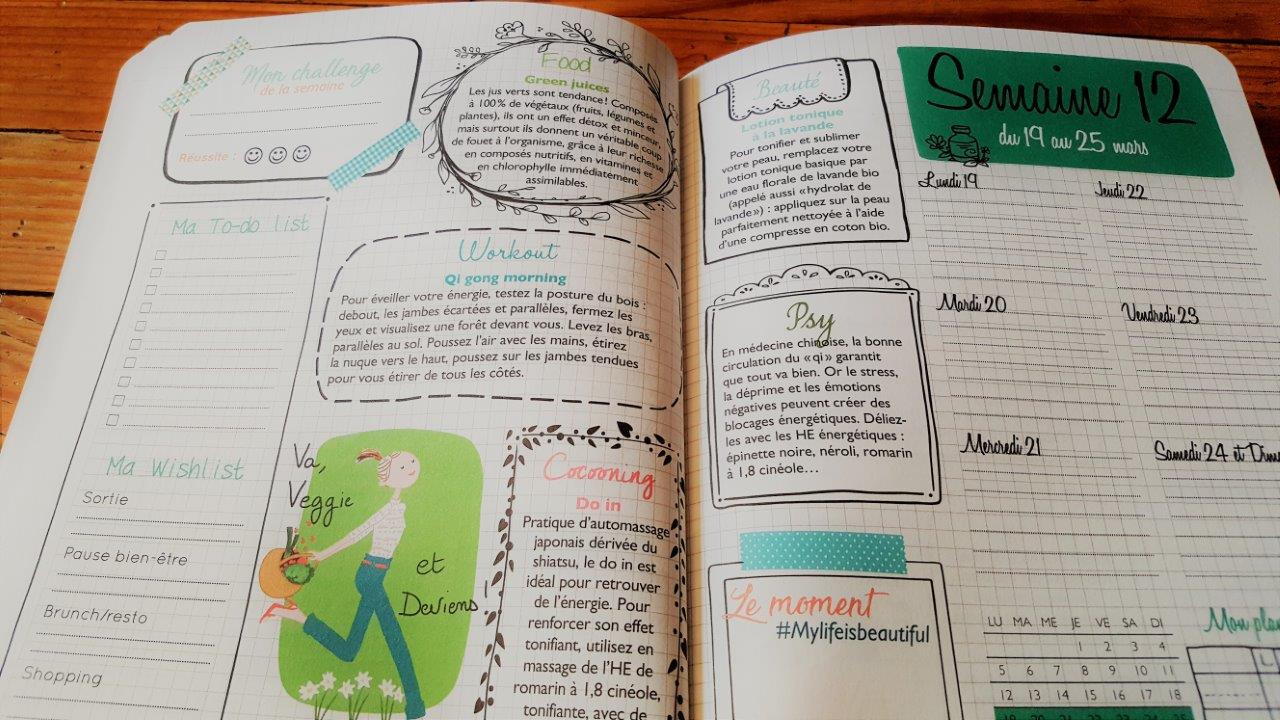 Mon challenge
de la semaine
Réussite :
Ma To-do list
Ma Wishlist
Sortie
Pause bien-être
Brunch/resto
Shopping
Food
Green juices
Les jus verts sont tendance ! Composés
à 100 % de végétaux (fruits, légumes et
plantes), ils ont un effet détox et minceur,
mais surtout ils donnent un véritable coup
de fouet à l'organisme, grâce à leur richesse
en composés nutritifs, en vitamines et
en chlorophylle immédiatement
assimilables.
Workout
Qi gong morning
Pour éveiller votre énergie, testez la posture du bois :
debout, les jambes écartées et parallèles, fermez les
yeux et visualisez une forêt devant vous. Levez les bras,
parallèles au sol. Poussez l'air avec les mains, étirez
la nuque vers le haut, poussez sur les jambes tendues
pour vous étirer de tous les côtés.
Va,
Veggie
et
Deviens
Cocooning
Do in
Pratique d'automassage
japonais dérivée du
shiatsu, le do in est
idéal pour retrouver
de l'énergie. Pour
renforcer son effet
tonifiant, utilisez en
massage de l'HE de
romarin à 1,8 cinéole,
tonifiante, avec de
Beauté
Lotion tonique
à la lavande
Pour tonifier et sublimer
votre peau, remplacez votre
lotion tonique basique par
une eau florale de lavande bio
(appelé aussi « hydrolat de
lavande ») : appliquez sur la peau
parfaitement nettoyée à l'aide
d'une compresse en coton bio.
Psy
En médecine chinoise, la bonne
circulation du « qi » garantit
que tout va bien. Or le stress,
la déprime et les émotions
négatives peuvent créer des
blocages énergétiques. Déliez-
les avec les HE énergétiques :
épinette noire, néroli, romarin
à 1,8 cinéole...
Le moment
#Mylifeisbeautiful
Semaine 12
du 19 au 25 mars
Lundi 19
Jeudi 22
Mardi 20
Vendredi 23
Mercredi 21
Samedi 24 et
LU MA ME JE VE SA DI
1 2 3 4
5 6 7 8 9 10 11
12 13 14 15 16 17 18
Mon